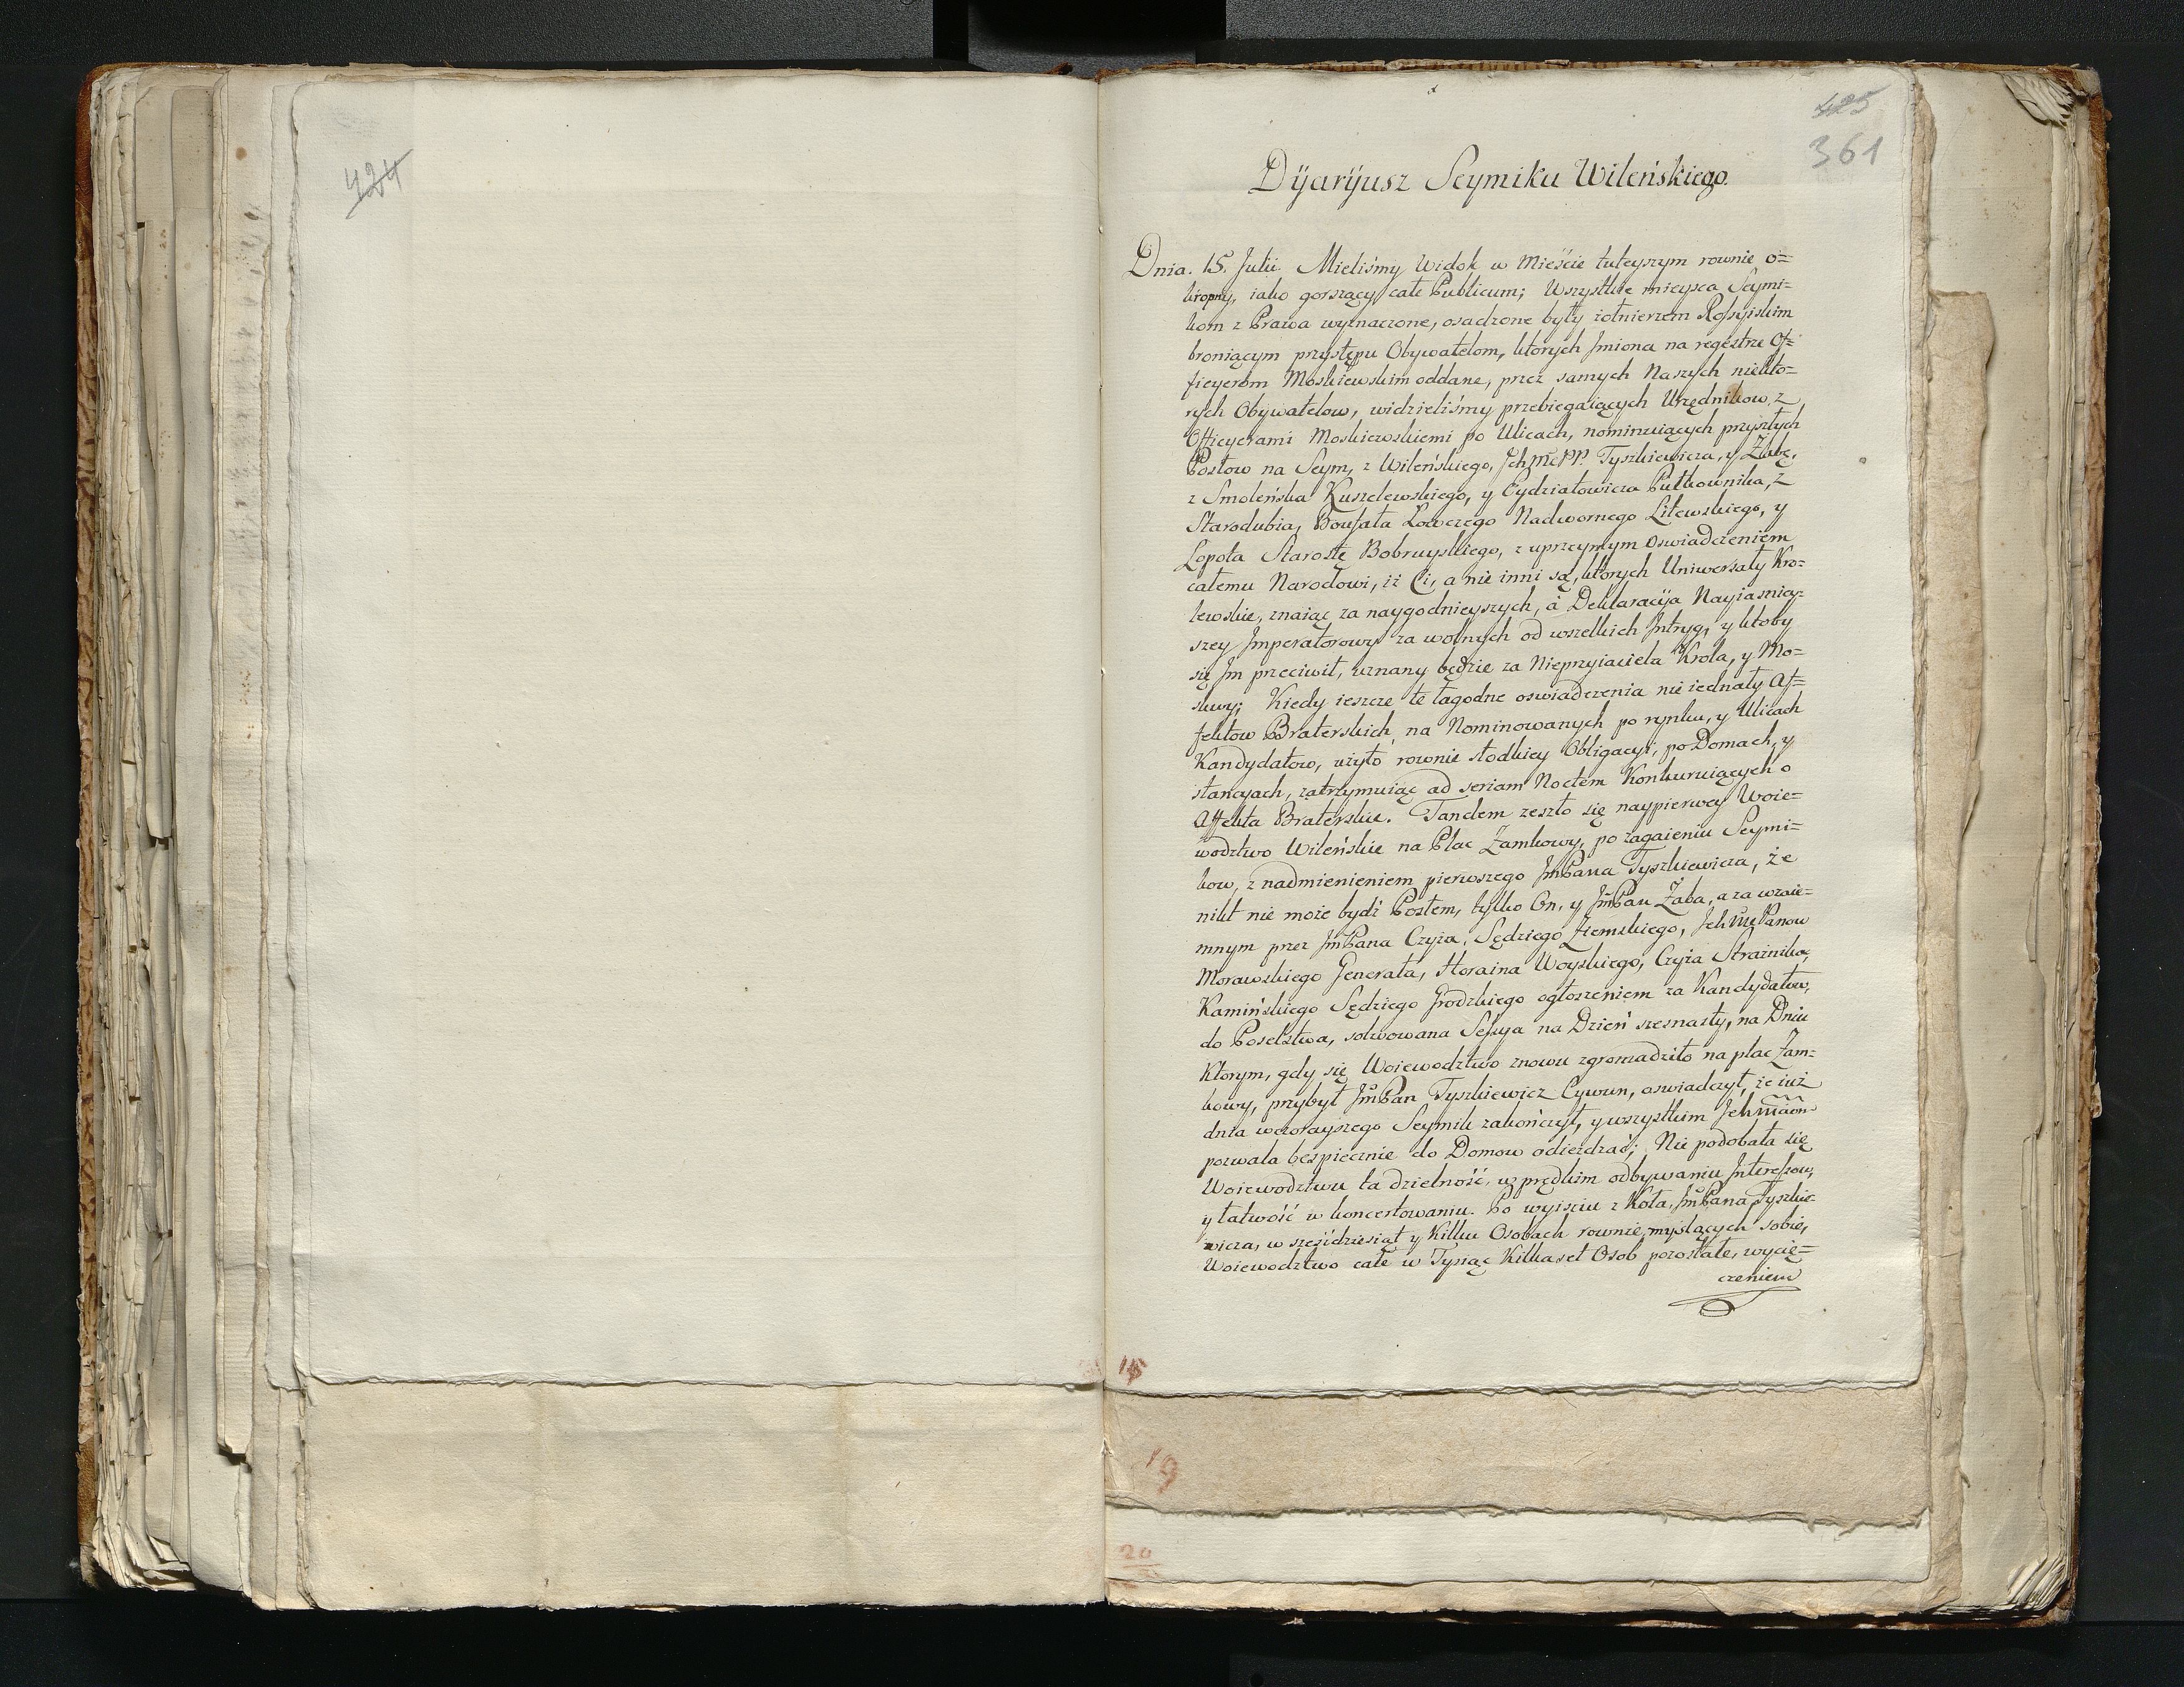 424
425
361
Dÿarÿusz Seymiku Wileńskiego.
Dnia. 15. Julii. Mieliśmy Widok w Mieście tuteyszym rownie o=
kropny, iako gorszący całe Publicum; Wszystkie mieysca Seymi=
kom z Prawa wyznaczone, osadzone były żołnierzem Rossyiskim
broniącym przystępu Obywatelom, ktorych Jmiona na regestrze Of=
ficyerom Moskiewskim oddane, przez samych Naszych niekto=
rych Obywatelow, widzieliśmy przebiegaiących Urzędnikow, z
Officyerami Moskiewskiemi po Ulicach, nominuiących przyszłych
Posłow na Seym, z Wileńskiego, Jchmć PP. Tyszkiewicza, y Żabę,
z Smoleńska Kuszelewskiego, y Eydziatowicza Pułkownika, z
Starodubia, Boufała Łowczego Nadwornego Litewskiego, y
Łopota Starostę Bobruyskiego, z uprzeymym oswiadczeniem
całemu Narodowi, iż Ci, a nie inni są, ktorych Uniwersały Kro=
lewskie, znaiąc za naygodnieyszych, á Deklaracÿa Nayiasniey=
szey Jmperatorowy za wolnych od wszelkich Jntryg, y ktoby
się Jm przeciwił, uznany będzie za Nieprzyiaciela Krola, y Mo=
skwy; Kiedy ieszcze te łagodne oswiadczenia nie iednały Af=
fektow Braterskich, na Nominowanych po rynku, y Ulicach
Kandydatow, użyto rownie słodkiey Obligacyi, po Domach, y
stancyach, zatrzymuiąc ad seriam Noctem Konkuruiących o
Affekta Braterskie. Tandem zeszło się naypierwey Woie=
wodztwo Wileńskie na Plac Zamkowy, po zagaieniu Seymi=
kow, z nadmienieniem pierwszego JmPana Tyszkiewicza, że
nikt nie może bydź Posłem, tylko On, y JmPan Żaba, a za wzaie=
mnym przez JmPana Czyża, Sędziego Ziemskiego, JchMćPanow
Morawskiego Generała, Horaina Woyskiego, Czyża Strażnika,
Kamińskiego Sędziego Grodzkiego ogłoszeniem za Kandydatow,
do Poselstwa, solwowana Sessya na Dzień szesnasty, na Dniu
Ktorym, gdy się Woiewodztwo znowu zgromadziło na plac Zam=
kowy, przybył JmPan Tyszkiewicz Cywun, oswiadczył, że iuż
dnia wczorayszego Seymik zakończył, y wszystkim Jchmciom
pozwala bespiecznie do Domow odieżdzać; Nie podobała się
Woiewodztwu ta dzielność, w prędkim odbywaniu Jnteressow,
y łatwość w koncertowaniu. Po wyisciu z Koła, JmPana Tyszkie=
wicza, w sześćdziesiąt y Kilku Osobach rownie myslących sobie,
Woiewodztwo całe w Tysiąc Kilkaset Osob pozostałe, wycię=
czeniem
19
20